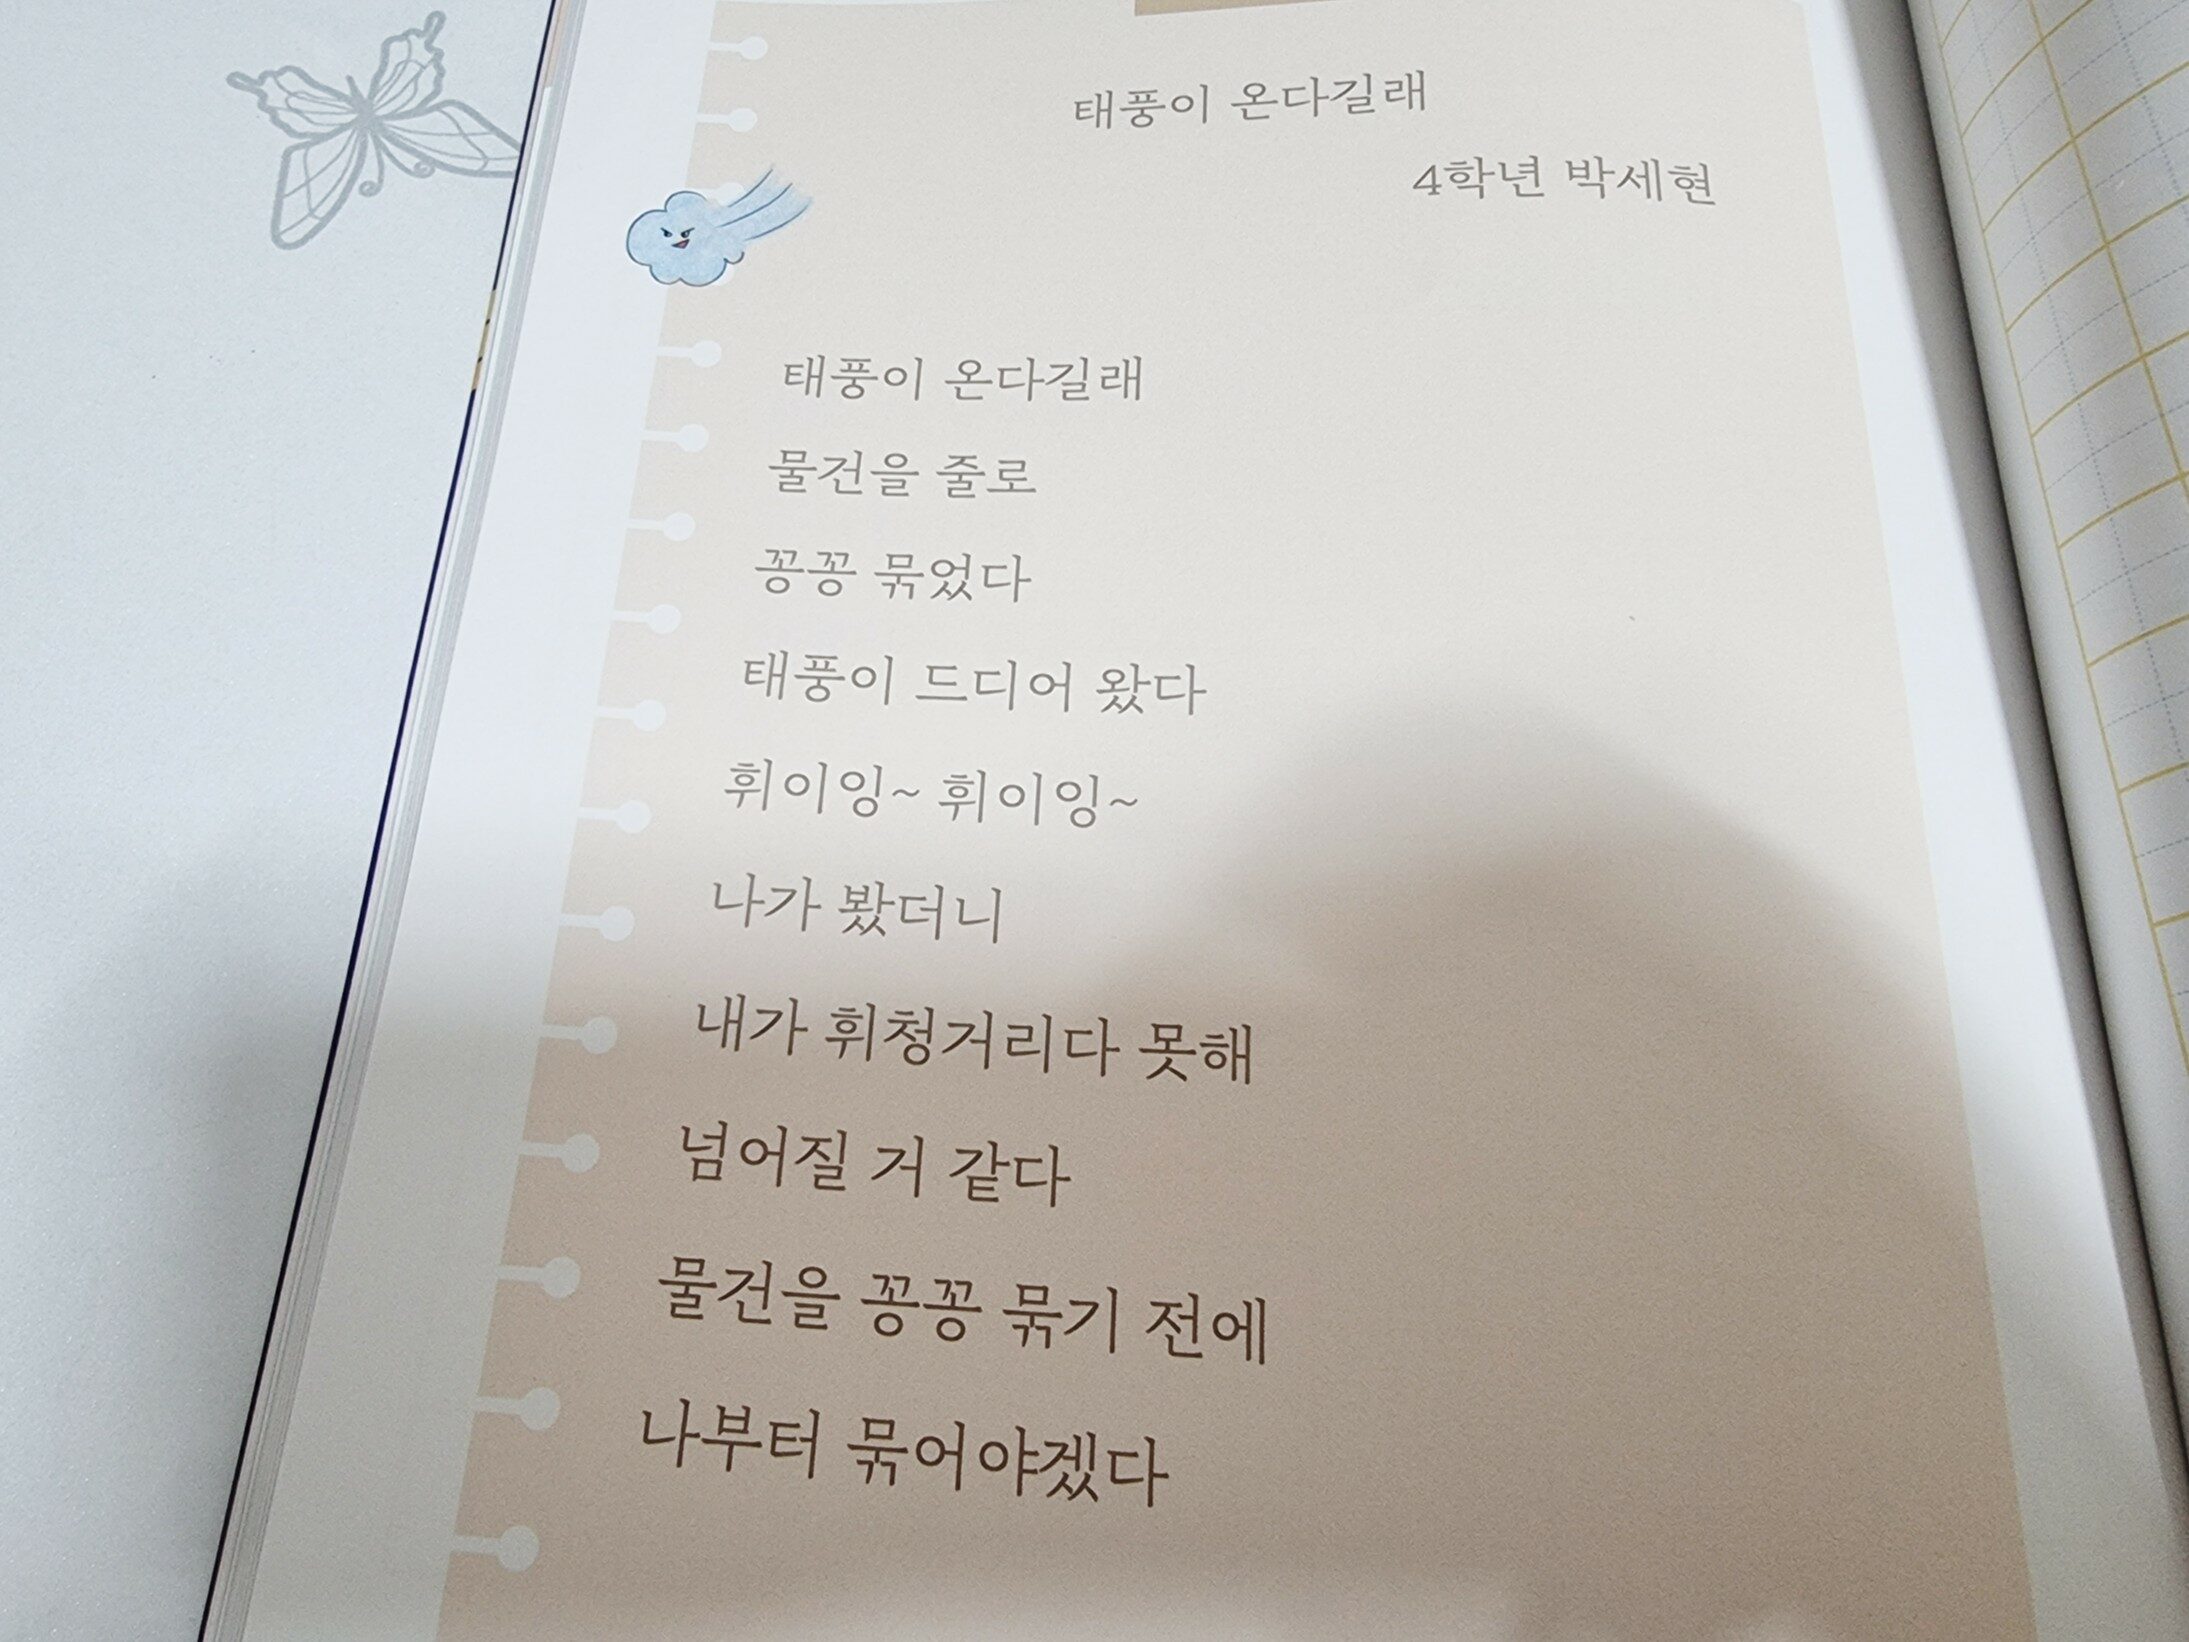 태풍이 온다길래
4학년 박세현
태풍이 온다길래
물건을 줄로
꽁꽁 묶었다
태풍이 드디어 왔다
휘이잉~ 휘이잉~
나가 봤더니
내가 휘청거리다 못해
넘어질 거 같다
물건을 꽁꽁 묶기 전에
나부터 묶어야겠다